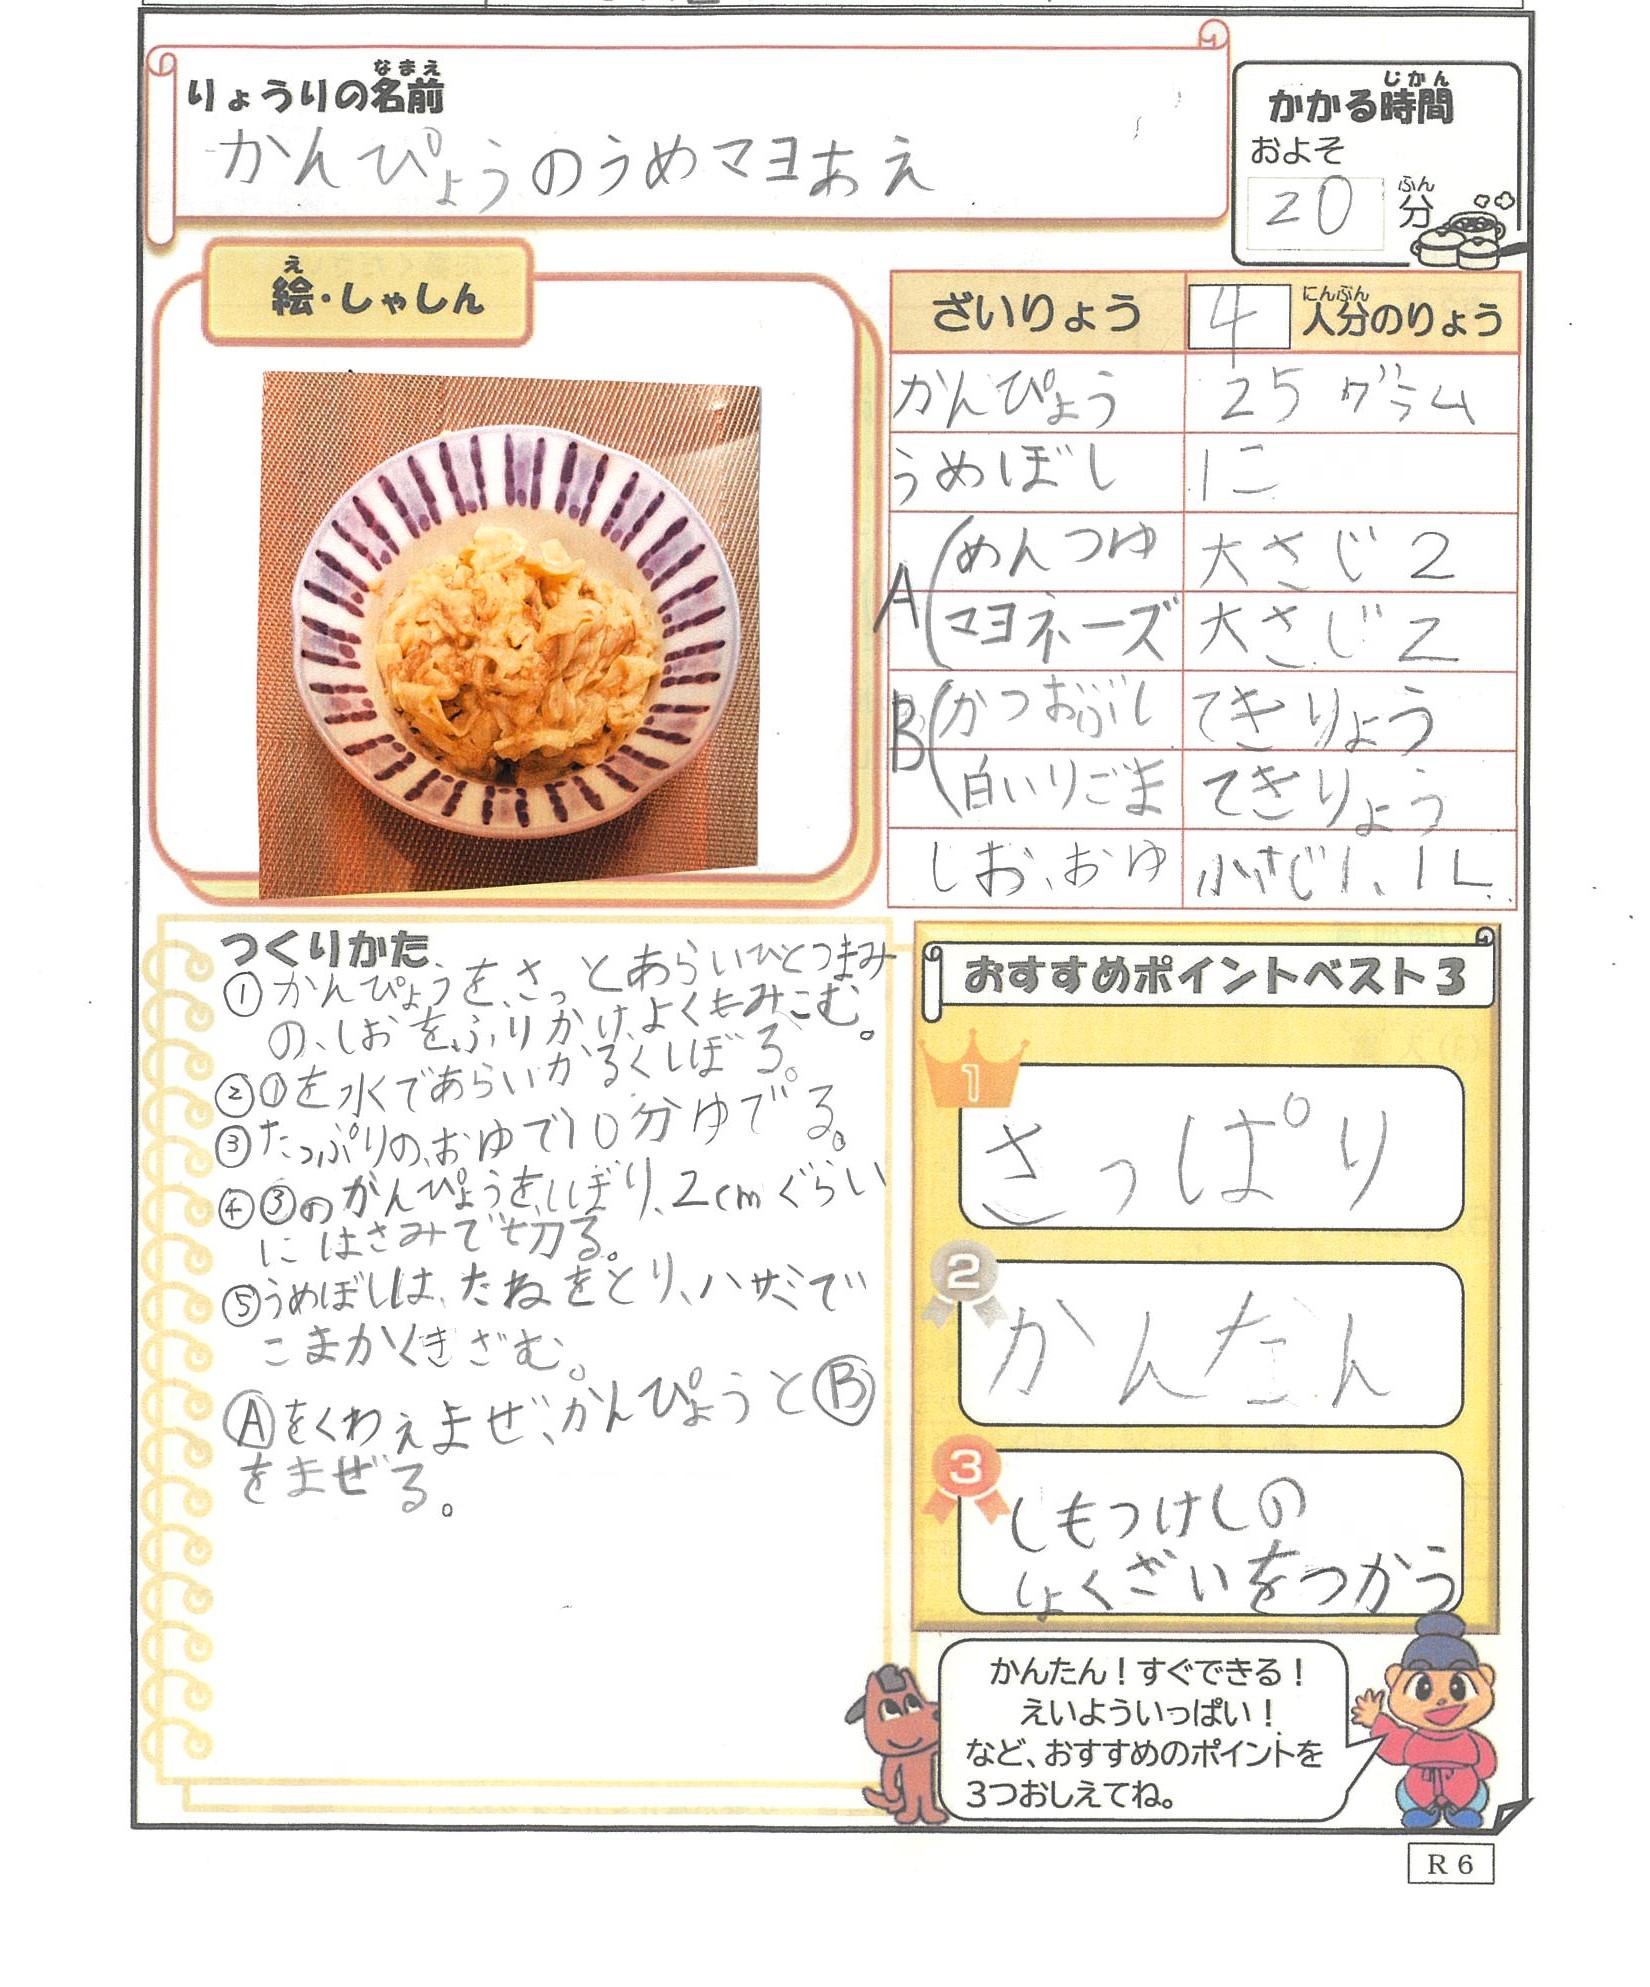 りょうりの名前
なまえ
かんぴょうのうめマヨあえ
かかる時間
じかん
およそ
20 分
ふん
絵・しゃしん
え
ざいりょう 4 人分のりょう
にんぶん
かんぴょう 25グラム
うめぼし 1こ
A(めんつゆ 大さじ2
マヨネーズ 大さじ2
B(かつおぶし てきりょう
白いりごま てきりょう
しお、おゆ 小さじ1、1L
つくりかた
①かんぴょうを、さっとあらいひとつまみ
の、しおをふりかけ、よくもみこむ。
②①を水であらいかるくしぼる。
③たっぷりの、おゆで10分ゆでる。
④③のかんぴょうを、しぼり、2cmぐらい
にはさみで切る。
⑤うめぼしは、たねをとり、ハサミで
こまかくきざむ。
Ⓐをくわえまぜ、かんぴょうとⒷ
をまぜる。
おすすめポイントベスト3
1
さっぱり
2
かんたん
3
しもつけしの
しょくざいをつかう
かんたん！すぐできる！
えいよういっぱい！
など、おすすめのポイントを
3つおしえてね。
R6